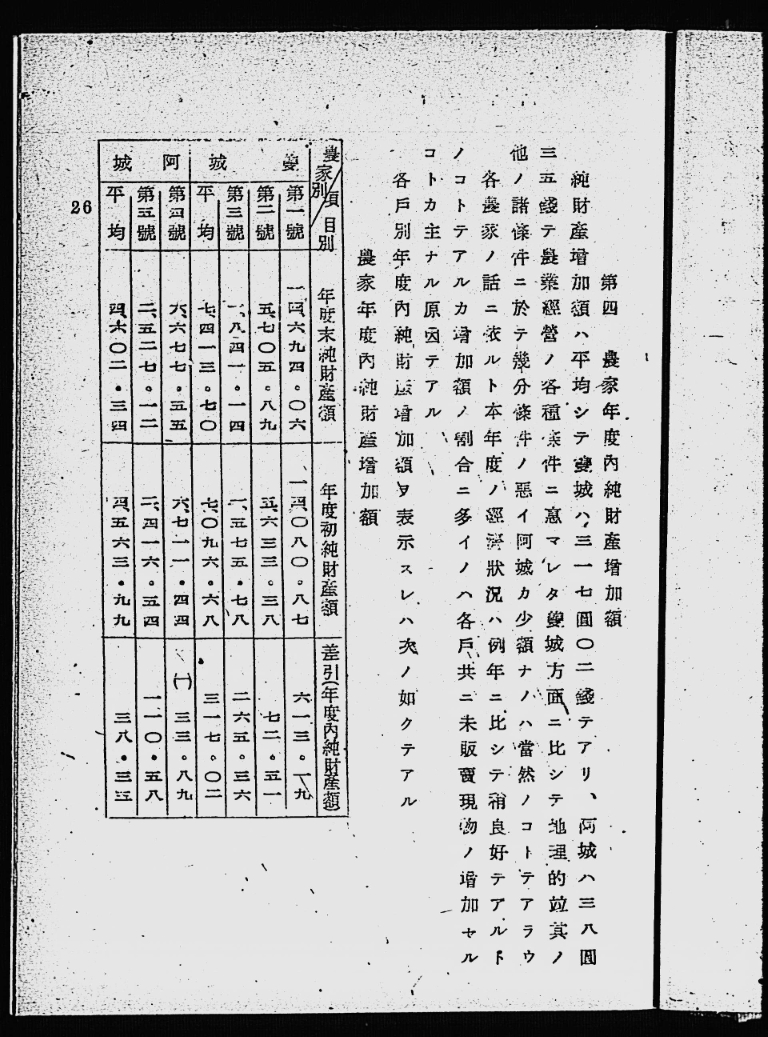 第四　農家年度內純財產增加額
純財產增加額ハ平均シテ雙城ハ三一七圓〇二錢テアリ、阿城ハ三八圓
三五錢テ農業經營ノ各種條件ニ惠マレタ雙城方面ニ比シテ地理的竝其ノ
他ノ諸條件ニ於テ幾分條件ノ惡イ阿城カ少額ナノハ當然ノコトテアラウ
各農家ノ話ニ依ルト本年度ノ經濟狀況ハ例年ニ比シテ稍良好テアルト
ノコトテアルカ增加額ノ割合ニ多イノハ各戶共ニ未販賣現物ノ增加セル
コトカ主ナル原因テアル
各戶別年度內純財產增加額ヲ表示スレハ次ノ如クテアル
農家年度內純財產增加額
農家別 項目別 年度末純財產額 年度初純財產額 差引(年度內純財產額)
雙城
第一號 一四、六九四。〇六 一四、〇八〇。八七 六一三。一九
第二號 五、七〇五。八九 五、六三三。三八 七二。五一
第三號 一、八四一。一四 一、五七五。七八 二六五。三六
平均 七、四一三。七〇 七、〇九六。六八 三一七。〇二
阿城
第四號 六、六七七。五五 六、七一一。四四 (一)三三。八九
第五號 二、五二七。一二 二、四一六。五四 一一〇。五八
平均 四、六〇二。三四 四、五六三。九九 三八。三五
26